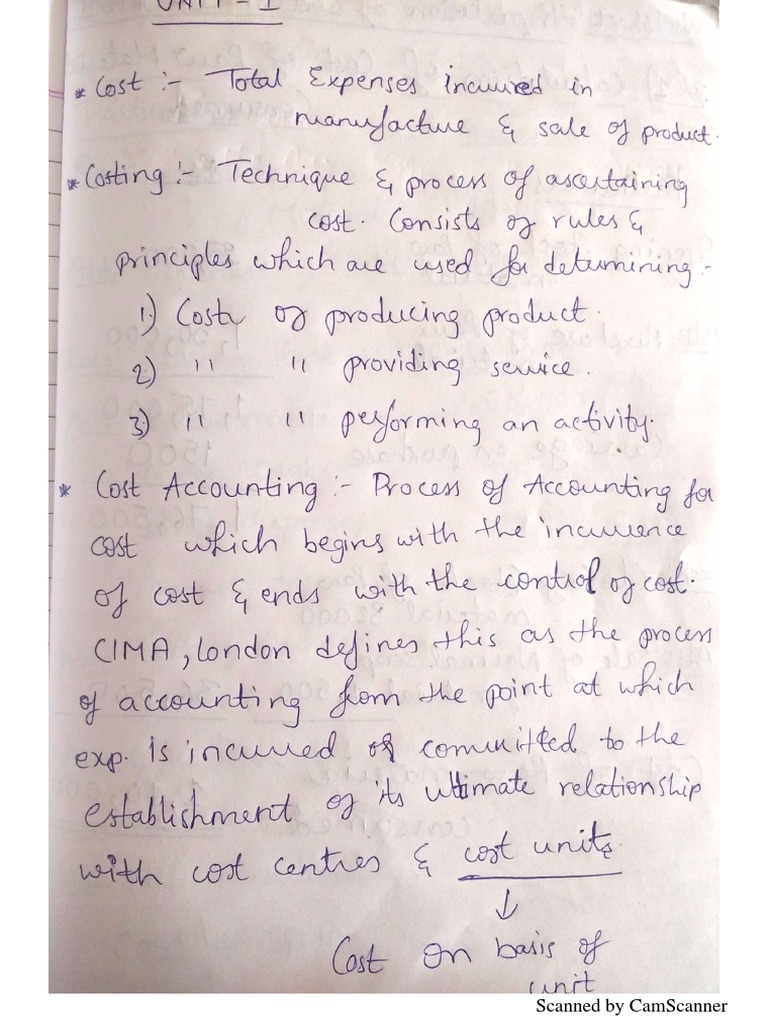 UNIT - I
* Cost :- Total Expenses incurred in
manufacture & sale of product.
* Costing :- Technique & process of ascertaining
cost. Consists of rules &
principles which are used for determining :-
1.) Cost of producing product.
2.) " " providing service.
3.) " " performing an activity.
* Cost Accounting :- Process of Accounting for
cost which begins with the incurrence
of cost & ends with the control of cost.
CIMA, London defines this as the process
of accounting from the point at which
exp. is incurred or committed to the
establishment of its ultimate relationship
with cost centres & cost units.
↓
Cost on basis of
unit
Scanned by CamScanner